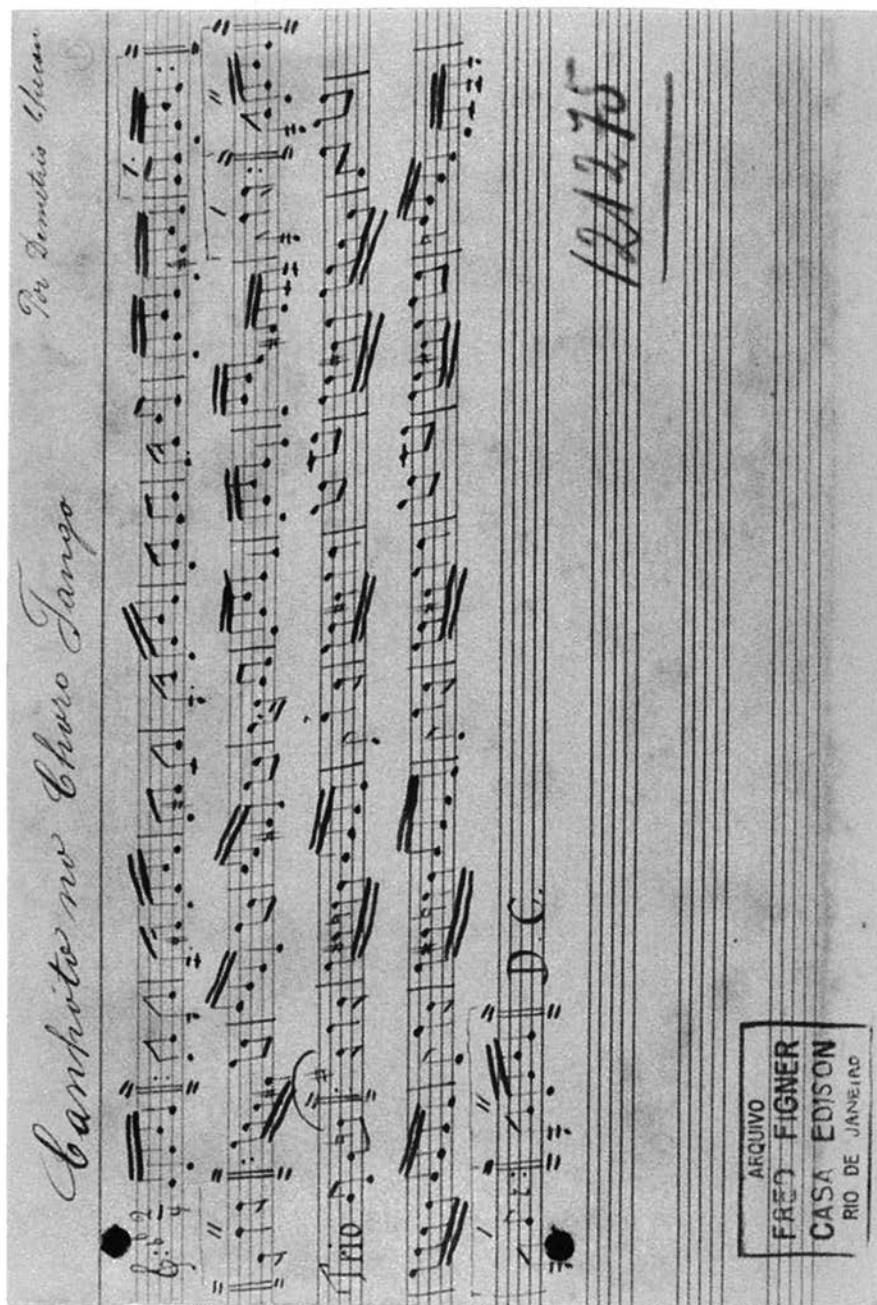 Canhoto no Choro Tango
Por Demetrio
1.
11
1
11
Trio
1
11
D.C.
121275
ARQUIVO
FRED FIGNER
CASA EDISON
RIO DE JANEIRO